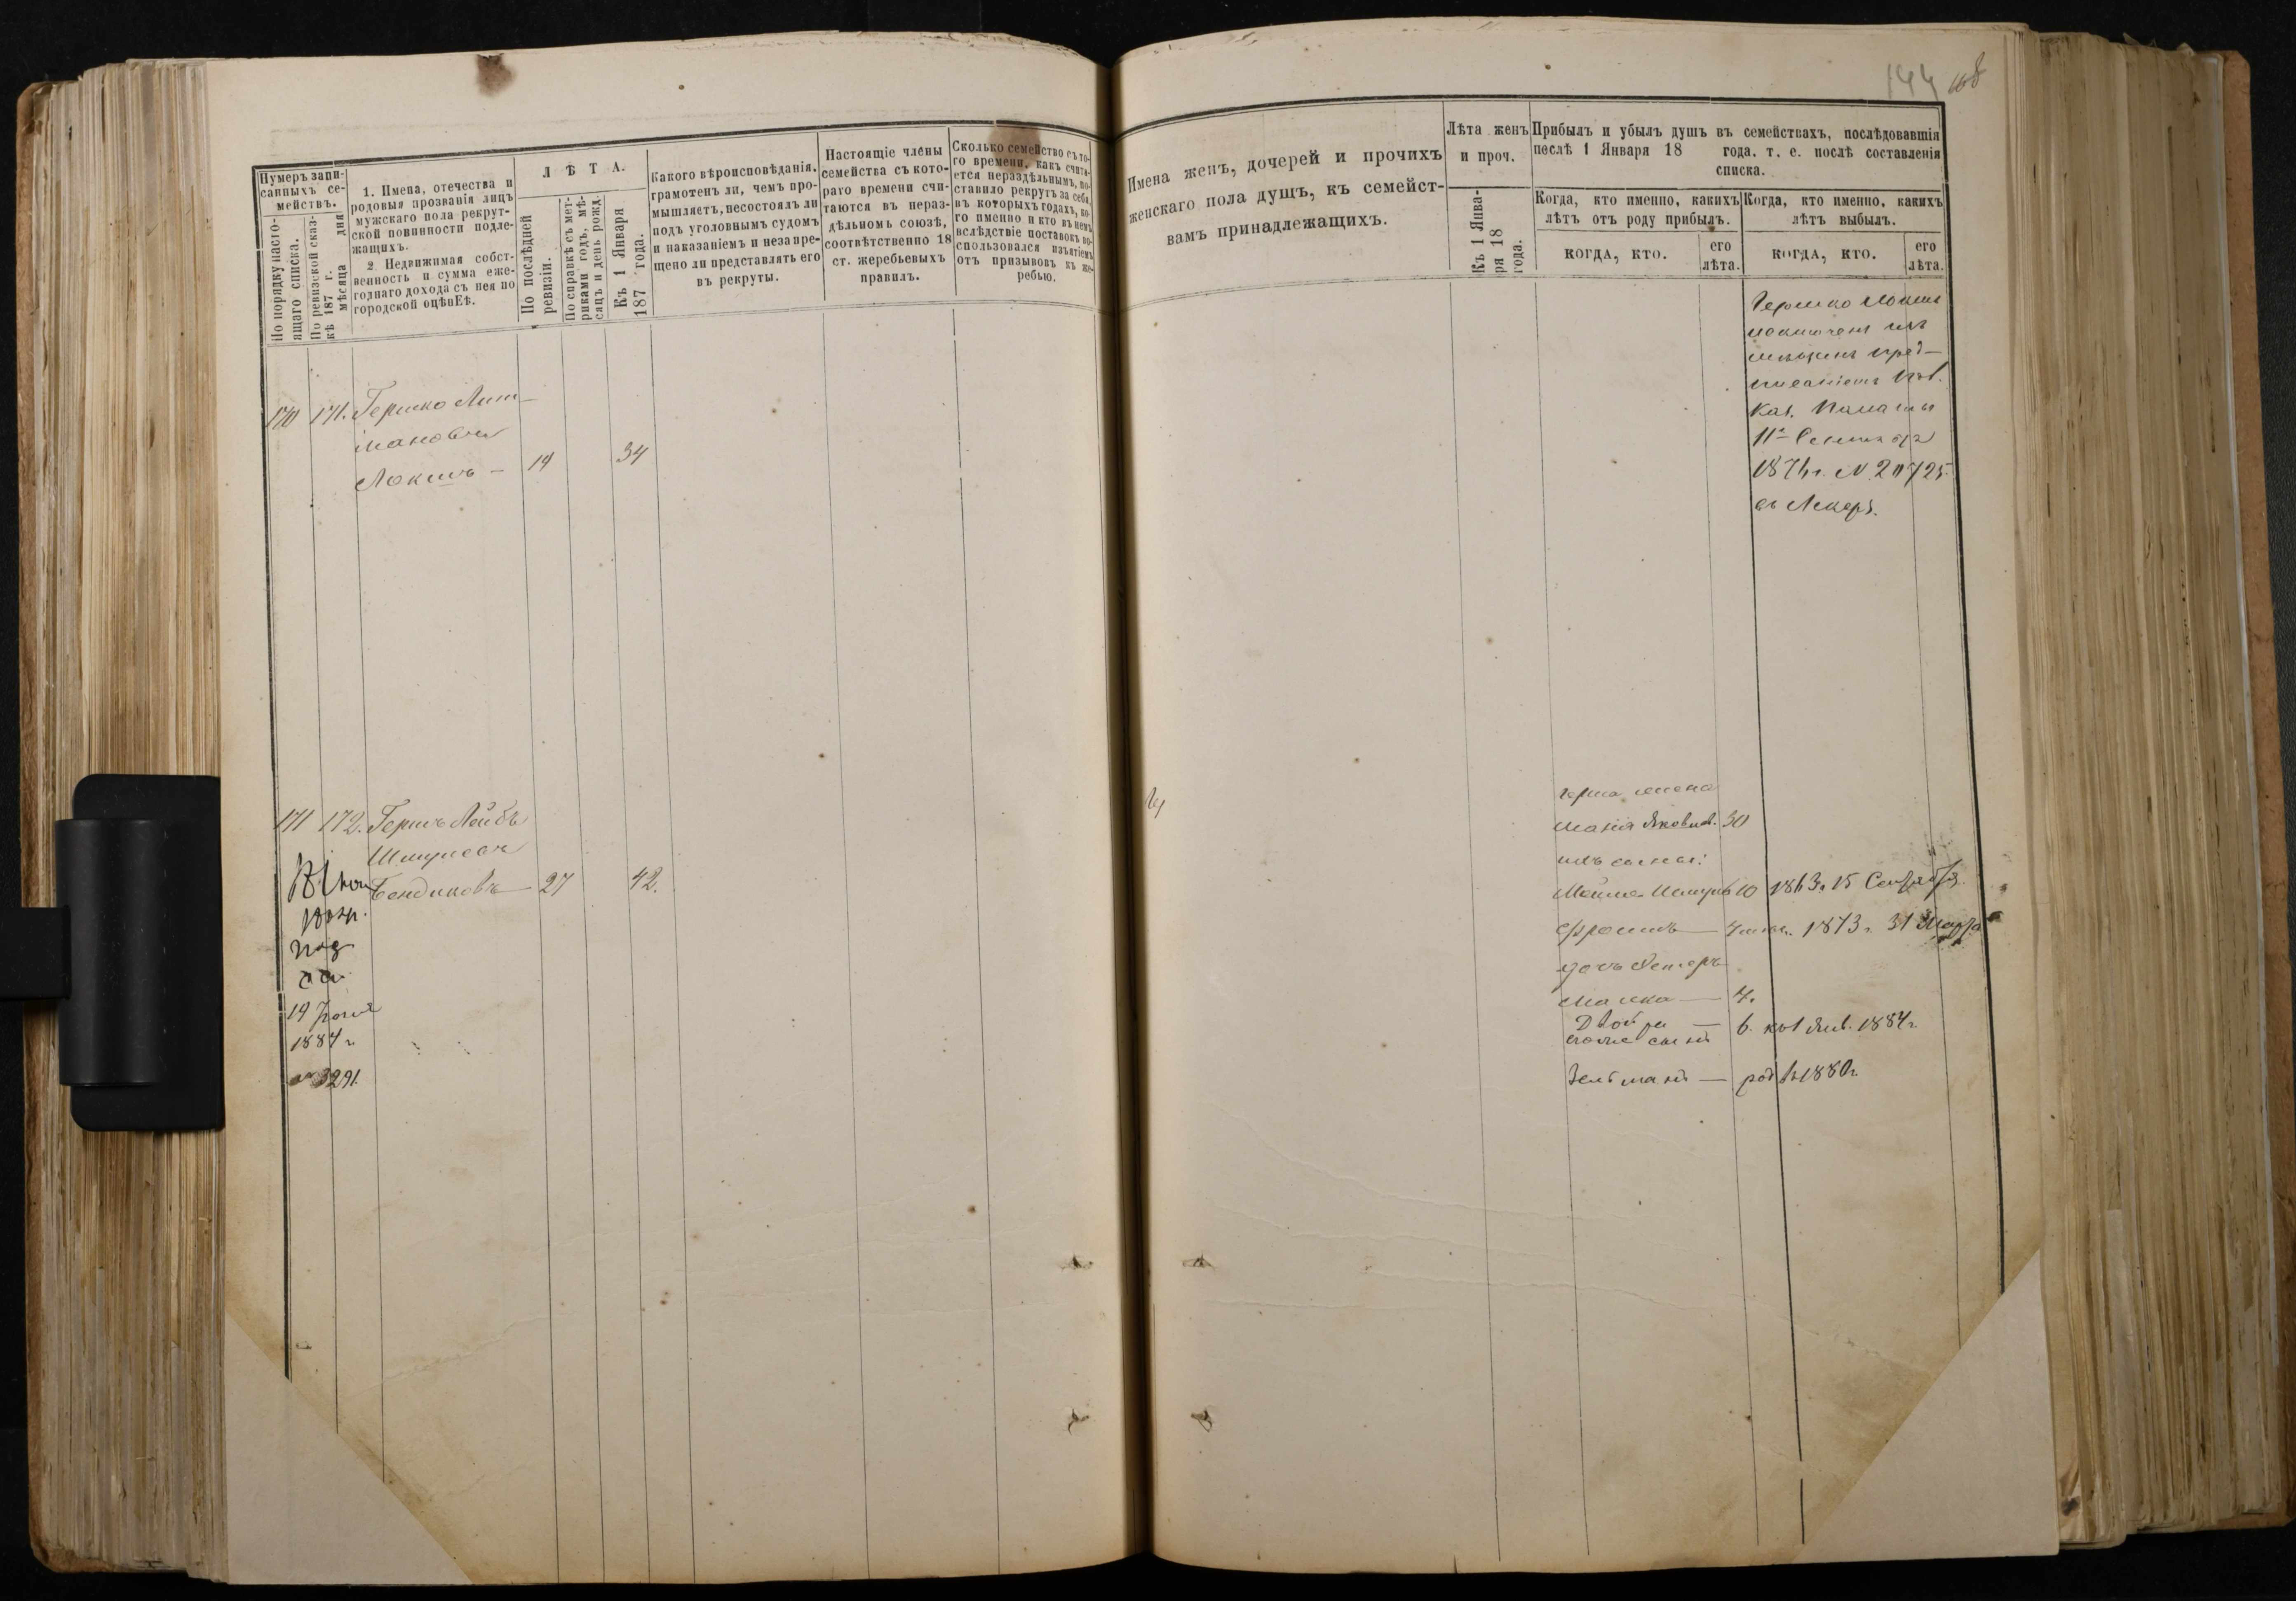 144 108
Нумеръ запи-
санныхъ се-
мействъ.
По порядку насто-
ящаго списка.
По ревизской сказ-
кѣ 187 г.
мѣсяца дня
1. Имена, отечества и
родовыя прозванія лицъ
мужскаго пола рекрут-
ской повинности подле-
жащихъ.
2. Недвижимая собст-
венность и сумма еже-
годнаго дохода съ нея по
городской оцѣнкѣ.
ЛѢТА.
По послѣдней
ревизіи.
По справкѣ съ мет-
риками годъ, мѣ-
сяцъ и день рожд.
Къ 1 Января
187 года.
Какого вѣроисповѣданія,
грамотенъ ли, чѣмъ про-
мышляетъ, несостоялъ ли
подъ уголовнымъ судомъ
и наказаніемъ и незапре-
щено ли представлять его
въ рекруты.
Настоящіе члены
семейства съ кото-
раго времени счи-
таются въ нераз-
дѣльномъ союзѣ,
соотвѣтственно 18
ст. жеребьевыхъ
правилъ.
Сколько семейство съ то-
го времени, какъ счита-
ется нераздѣльнымъ, по-
ставило рекрутъ за себя,
въ которыхъ годахъ, ко-
го именно и кто въ немъ
вслѣдствіе поставокъ во-
спользовался изъятіемъ
отъ призывовъ къ же-
ребью.
Имена женъ, дочерей и прочихъ
женскаго пола душъ, къ семейст-
вамъ принадлежащихъ.
Лѣта женъ
и проч.
Къ 1 Янва-
ря 18
года.
Прибылъ и убылъ душъ въ семействахъ, послѣдовавшія
песлѣ 1 Января 18 года. т. е. послѣ составленія
списка.
Когда, кто именно, какихъ
лѣтъ отъ роду прибылъ.
КОГДА, КТО.
его
лѣта.
Когда, кто именно, какихъ
лѣтъ выбылъ.
КОГДА, КТО.
его
лѣта.
170 171. Гершко Лит-
мановъ
Локшъ — 14 34
Гершко Локшъ
исключенъ изъ
мѣщанъ пред-
писаніемъ
Каз. Палаты
11 Сентября
187
171 172. Гершъ Лейбъ
Шмулевъ
Бендиковъ — 27 42.
19 Іюня
1884 г.
№ 3291.
Герша жена
Манія Яковлев. 30
ихъ сыновья:
Мойше Шмуль 10 1863 г. 15 Сентября.
Фроимъ — 1873 г. 31 Марта
дочь Эстеръ
Малка — 4.
Двойра — 6. къ 1 Янв. 1884 г.
сынъ
Зельманъ — род. въ 1880 г.